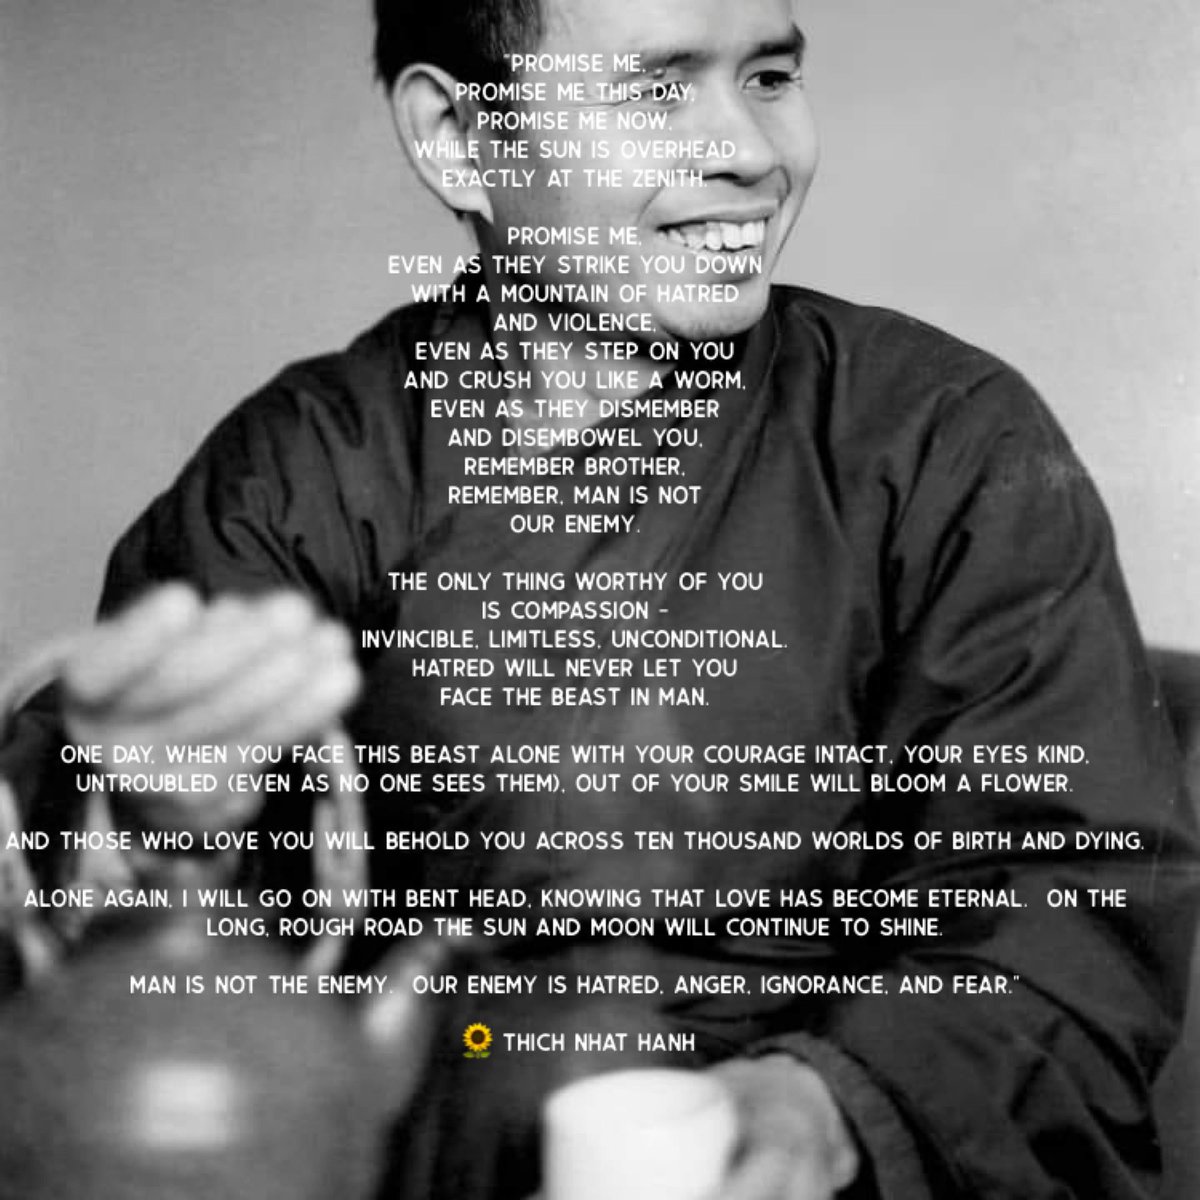 "PROMISE ME,
PROMISE ME THIS DAY,
PROMISE ME NOW,
WHILE THE SUN IS OVERHEAD
EXACTLY AT THE ZENITH.
PROMISE ME,
EVEN AS THEY STRIKE YOU DOWN
WITH A MOUNTAIN OF HATRED
AND VIOLENCE,
EVEN AS THEY STEP ON YOU
AND CRUSH YOU LIKE A WORM,
EVEN AS THEY DISMEMBER
AND DISEMBOWEL YOU,
REMEMBER BROTHER,
REMEMBER, MAN IS NOT
OUR ENEMY.
THE ONLY THING WORTHY OF YOU
IS COMPASSION -
INVINCIBLE, LIMITLESS, UNCONDITIONAL.
HATRED WILL NEVER LET YOU
FACE THE BEAST IN MAN.
ONE DAY, WHEN YOU FACE THIS BEAST ALONE WITH YOUR COURAGE INTACT, YOUR EYES KIND,
UNTROUBLED (EVEN AS NO ONE SEES THEM), OUT OF YOUR SMILE WILL BLOOM A FLOWER.
AND THOSE WHO LOVE YOU WILL BEHOLD YOU ACROSS TEN THOUSAND WORLDS OF BIRTH AND DYING.
ALONE AGAIN, I WILL GO ON WITH BENT HEAD, KNOWING THAT LOVE HAS BECOME ETERNAL. ON THE
LONG, ROUGH ROAD THE SUN AND MOON WILL CONTINUE TO SHINE.
MAN IS NOT THE ENEMY. OUR ENEMY IS HATRED, ANGER, IGNORANCE, AND FEAR."
🌻 THICH NHAT HANH